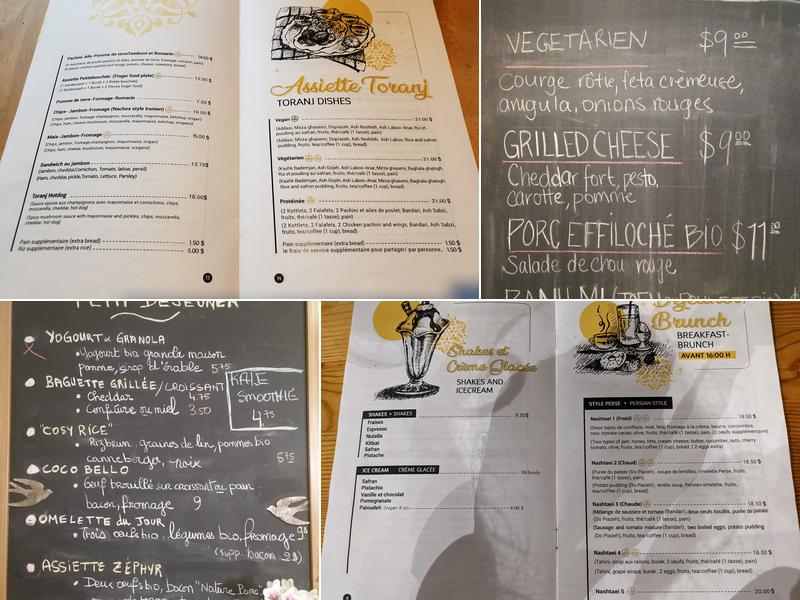 Pachini-Aile-Pomme de terreTandoori et Romarin 14.50 $
Assiette Petitebouchée: (Finger food plate) 12.50 $
(1 Sambousseh + 1 Burek + 2 Pieces finger food)
Pomme de terre-Fromage-Romarin 7.00 $
Chips- Jambon-Fromage (Nachos style Iranien) 16.00 $
(Chips, jambon, fromage champignon, mozzarella, mayonnaise, ketchup, origan)
(Chips, ham, cheese, mushroom, mozzarella, mayonnaise, ketchup, oregano)
Mais-Jambon-Fromage 15.00 $
(Chips, jambon, fromage champignon, mayonnaise, origan)
(Chips, ham, cheese, mushroom, mayonnaise, oregano)
Sandwich au jambon 13.75$
(Jambon, cheddar, Cornichon, Tomate, laitue, persil)
(Ham, cheddar, pickle, Tomato, Lettuce, Parsley)
Toranj Hotdog 16.00$
(Sauce épicée aux champignons avec mayonnaise et cornichons, chips, mozzarella, cheddar, hot dog)
(Spicy mushroom sauce with mayonnaise and pickles, chips, mozzarella, cheddar, hot dog)
Pain supplémentaire (extra bread) 1.50 $
Riz supplémentaire (extra rice) 5.00 $
13
Assiette Toranj
TORANJ DISHES
Vegan 21.00 $
(Addasi, Mirza ghasemi, Dopiazeh, Ash Reshteh, Ash Laboo-Anar, Riz et pouding au safran, fruits, thé/café (1 tasse), pain)
(Addasi, Mirza ghasemi, Dopiazeh, Ash Reshteh, Ash Laboo, Rice and saffron pudding, fruits, tea/coffee (1 cup), bread)
Végétarien 21.00 $
(Kashk Bademjan, Ash Gojeh, Ash Laboo-Anar, Mirza Ghasemi, Baghala ghatogh, Riz et pouding au safran, fruits, thé/café (1 tasse), pain)
(Kashk Bademjan, Ash Gojeh, Ash Laboo-Anar, Mirza Ghasemi, Baghala ghatogh, Rice and saffron pudding, fruits, tea/coffee (1 cup), bread)
Protéinée 21.00 $
(2 Kottlets, 2 Falafels, 2 Pachini et ailes de poulet, Bandari, Ash Sabzi, fruits, thé/café (1 tasse), pain)
(2 Kottlets, 2 Falafels, 2 Chicken pachini and wings, Bandari, Ash Sabzi, fruits, tea/coffee (1 cup), bread)
Pain supplémentaire (extra bread) 1.50 $
le frais de service supplémentaire pour partager/ par personne.. 1.50 $
14
VEGETARIEN $9.00
Courge rôtie, feta crémeuse,
arugula, onions rouges
GRILLED CHEESE $9.00
Cheddar fort, pesto,
carotte, pomme
PORC EFFILOCHÉ BIO $11
Salade de chou rouge
PETIT DÉJEUNER
YOGOURT & GRANOLA
• Yogourt bio granola maison
pomme, sirop d'érable 5.75
BAGUETTE GRILLÉE/CROISSANT
• Cheddar 4.75
• Confiture ou miel 3.50
KALE
SMOOTHIE
4.75
"COSY RICE"
• Riz brun, graines de lin, pommes bio
canneberges, noix 5.75
COCO BELLO
• Oeuf brouillé sur croissant ou pain
bacon, fromage 9
OMELETTE DU JOUR
• Trois oeufs bio, légumes bio, fromage 9$
(supp. bacon 2$)
ASSIETTE ZÉPHYR
• Deux oeufs bio, bacon "Nature Porc"
Shakes et
Crème Glacée
SHAKES AND
ICECREAM
SHAKES • SHAKES 8.50$
Fraises
Espresso
Nutella
Kitkat
Safran
Pistache
ICE CREAM CRÈME GLACÉE 3$/boule
Safran
Pistachio
Vanille et chocolat
Pomegranate
Paloudeh (Vegan 8 oz) 9.00 $
Déjeuner
Brunch
BREAKFAST-
BRUNCH
AVANT 16:00 H
STYLE PERSE • PERSIAN STYLE
Nashtaei 1 (Froid) 18.50 $
(Deux types de confiture, miel, feta, fromage à la crème, beurre, concombre, noix, tomate cerise, olive, fruits, thé/café (1 tasse), pain. (2 oeufs supplémentaire)
(Two types of jam, honey, feta, cream cheese, butter, cucumber, nuts, cherry tomato, olive, fruits, tea/coffee (1 cup), bread. ( 2 eggs extra)
Nashtaei 2 (Chaud) 18.50 $
(Purée du patate (Do Piazeh), soupe de lentilles, omelette Perse, fruits, thé/café (1 tasse), pain)
(Potato pudding (Do Piazeh), lentils soup, Persian omelette, fruits, tea/coffee (1 cup), bread)
Nashtaei 3 (Chaude) 18.50 $
(Mélange de saucisse et tomate (Bandari), deux oeufs durs, purée de patate (Do Piazeh), fruits, thé/café (1 tasse), pain)
(Sausage and tomato mixture (Bandari), two boiled eggs, potato pudding (Do Piazeh), fruits, tea/coffee (1 cup), bread)
Nashtaei 4 18.50 $
(Tahini, sirop aux raisins, burek, 2 oeufs, fruits, thé/café (1 tasse), pain)
(Tahini, grape sirope, burek, 2 eggs, fruits, tea/coffee (1 cup), bread)
Nashtaei 5 20.00 $